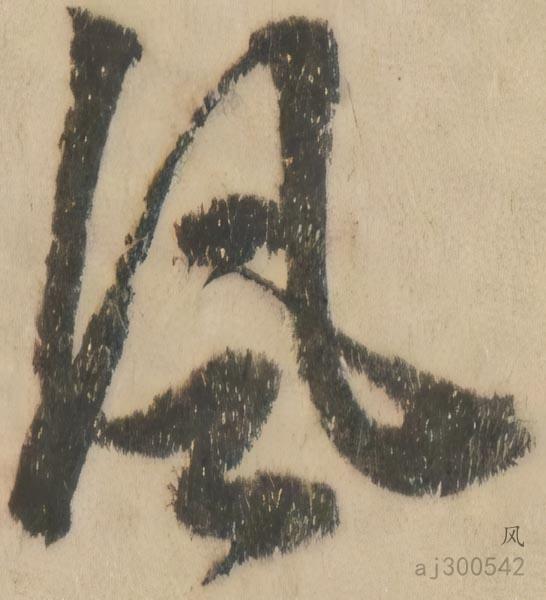 風
风
aj300542